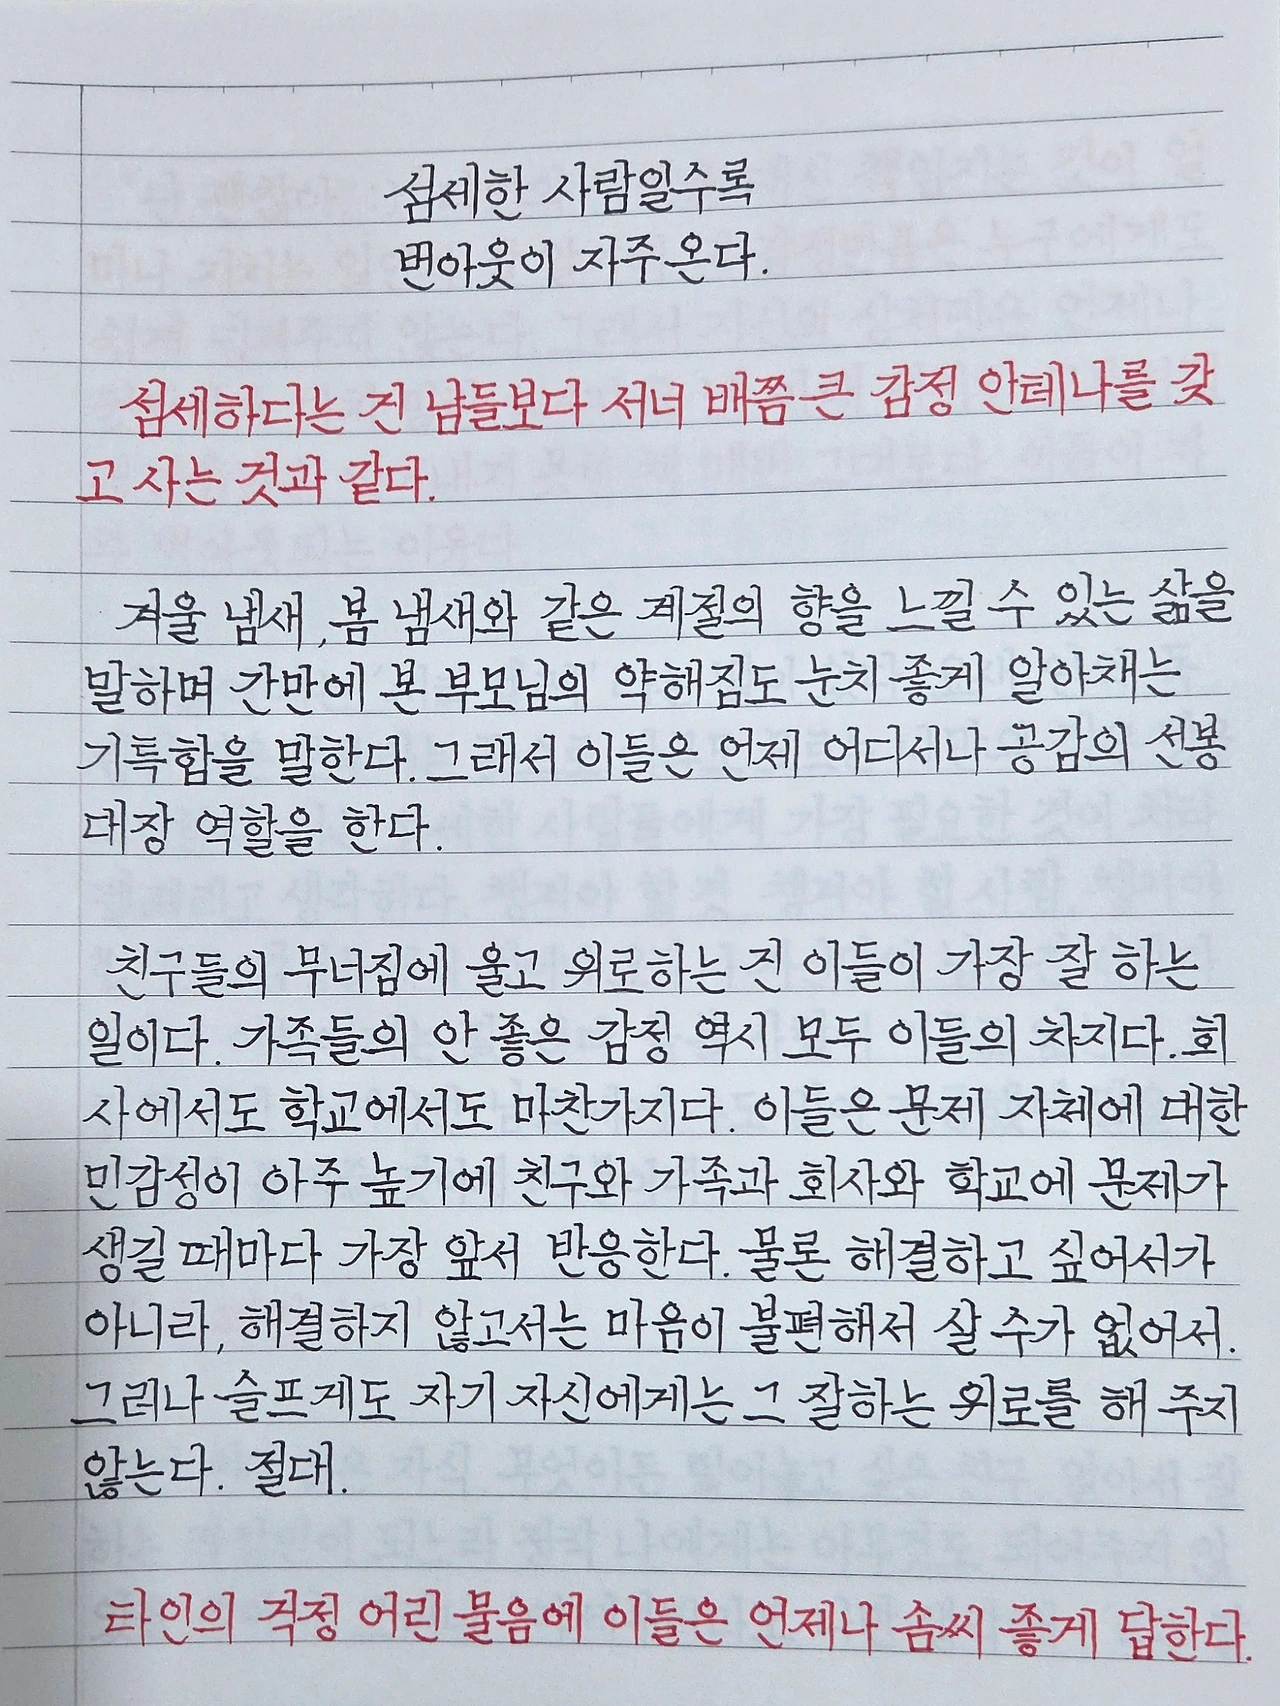 섬세한 사람일수록
번아웃이 자주 온다.
섬세하다는 건 남들보다 서너 배쯤 큰 감정 안테나를 갖
고 사는 것과 같다.
겨울 냄새, 봄 냄새와 같은 계절의 향을 느낄 수 있는 삶을
말하며 간만에 본 부모님의 약해짐도 눈치 좋게 알아채는
기특함을 말한다. 그래서 이들은 언제 어디서나 공감의 선봉
대장 역할을 한다.
친구들의 무너짐에 울고 위로하는 건 이들이 가장 잘 하는
일이다. 가족들의 안 좋은 감정 역시 모두 이들의 차지다. 회
사에서도 학교에서도 마찬가지다. 이들은 문제 자체에 대한
민감성이 아주 높기에 친구와 가족과 회사와 학교에 문제가
생길 때마다 가장 앞서 반응한다. 물론 해결하고 싶어서가
아니라, 해결하지 않고서는 마음이 불편해서 살 수가 없어서.
그러나 슬프게도 자기 자신에게는 그 잘하는 위로를 해 주지
않는다. 절대.
타인의 걱정 어린 물음에 이들은 언제나 솜씨 좋게 답한다.